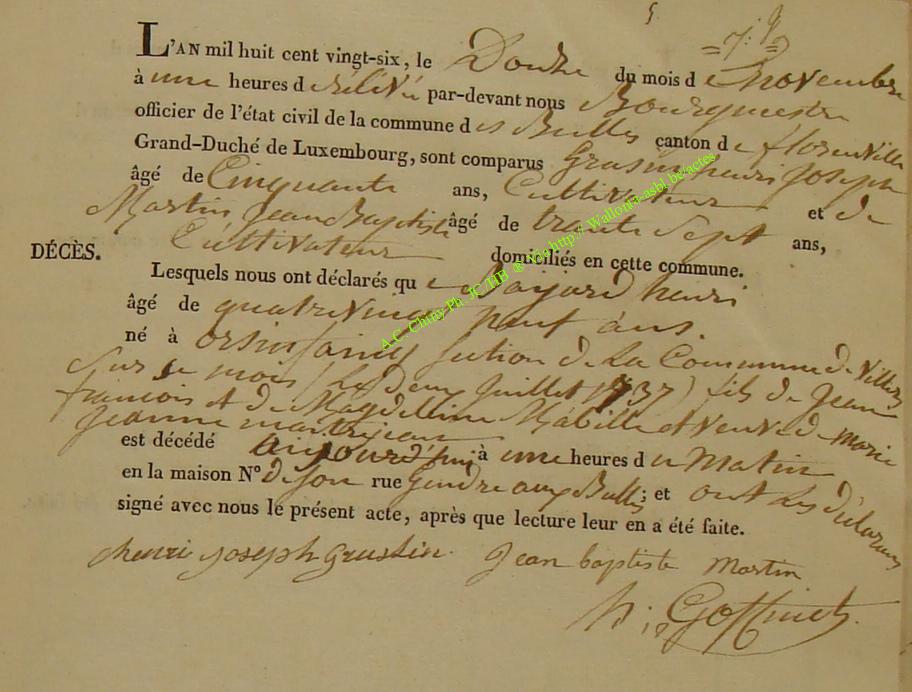 = 7. 9
L'AN mil huit cent vingt-six, le Douze du mois de Novembre
à une heures de relevé par-devant nous Bourgmestre
officier de l'état civil de la commune des Bulles canton de florenville
Grand-Duché de Luxembourg, sont comparus henri Joseph
âgé de Cinquante ans, Cultivateur et de
Martin Jean Baptiste âgé de trente Sept ans,
Cultivateur domiciliés en cette commune.
DÉCÈS.
Lesquels nous ont déclarés que henri
âgé de quatrevingt neuf ans.
né à orsinfaing section de La Commune de Villers
Sur Se mois (Le Deux Juillet 1737) fils de Jean
francois et de Magdelline Mabille et veuve de marie
Jeanne martinjean
est décédé aujourd'hui à une heures du Matin
en la maison N° de son rue Gendre aux Bulles; et ont Les Déclarans
signé avec nous le présent acte, après que lecture leur en a été faite.
henri joseph Grustin. Jean baptiste Martin
h. j. Goffinet
A.C. Chiny Ph. JC HB ® Via http://Wallonia-asbl.be/actes